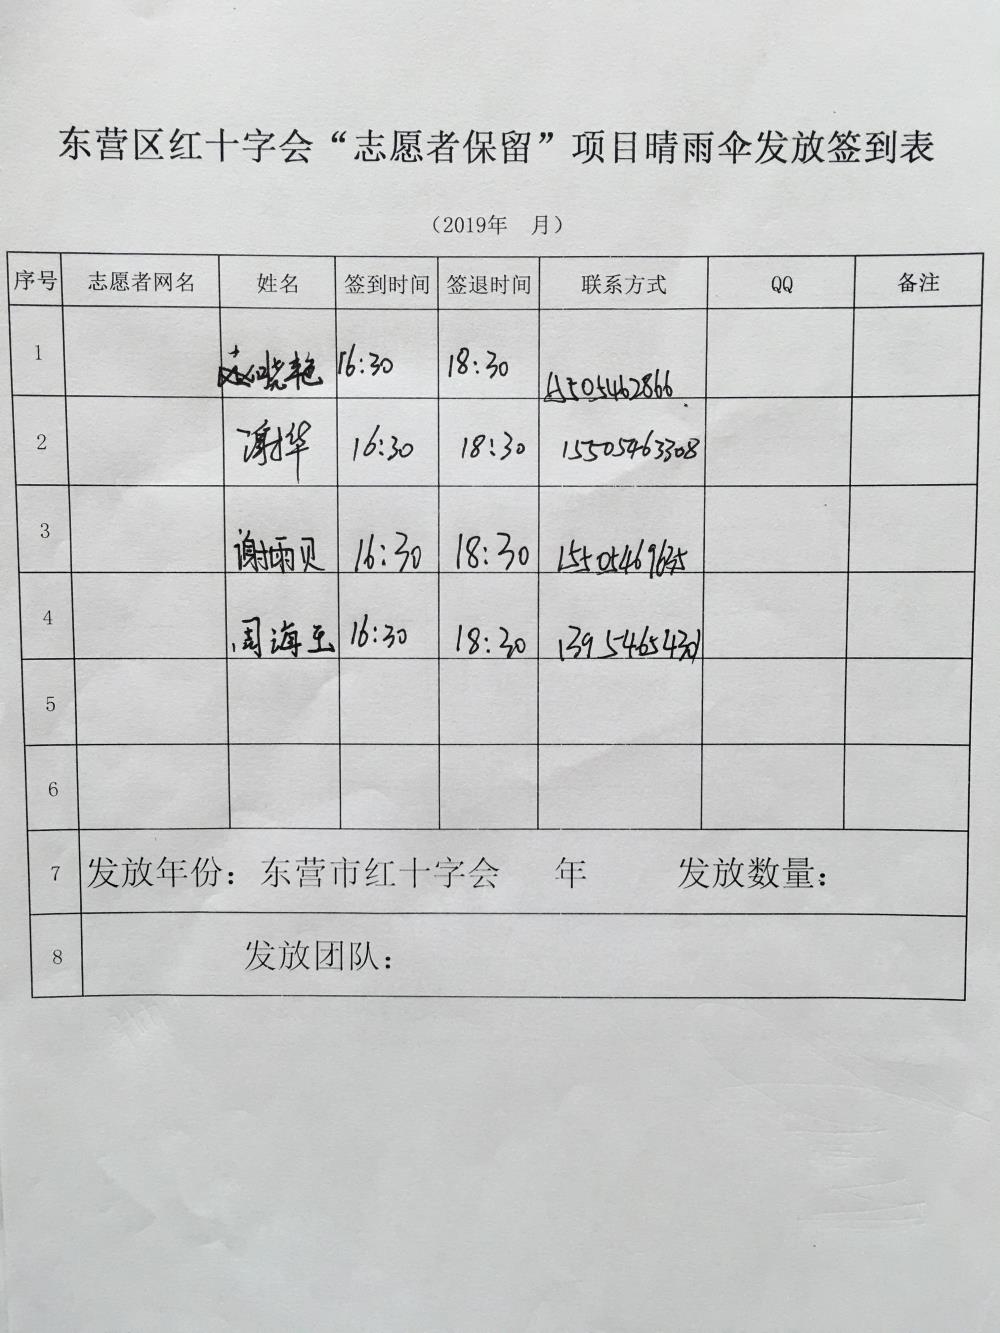 东营区红十字会“志愿者保留”项目晴雨伞发放签到表
（2019年 月）
序号 志愿者网名 姓名 签到时间 签退时间 联系方式 QQ 备注
1 赵晓艳 16:30 18:30 15505462866
2 谢华 16:30 18:30 15505463308
3 谢雨贝 16:30 18:30 15505469635
4 周海玉 16:30 18:30 13954654301
5
6
7 发放年份：东营市红十字会 年 发放数量：
8 发放团队：